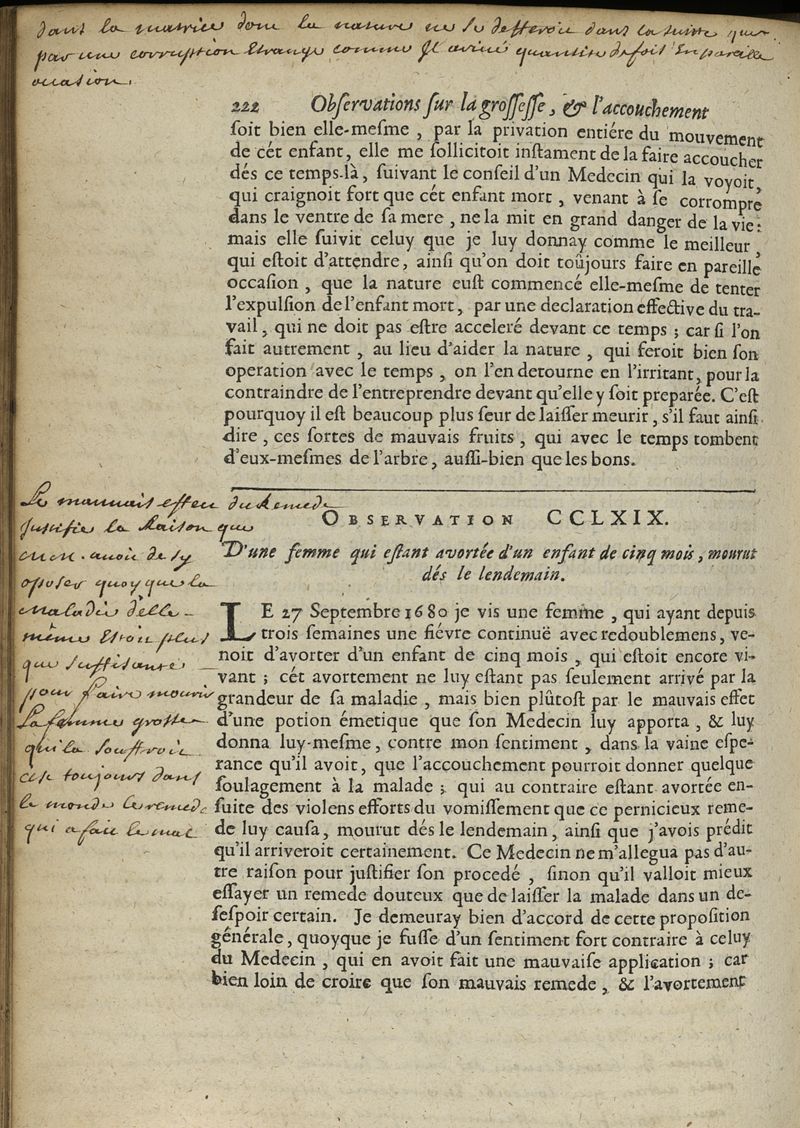 dans la matrice dont la nature ne se defferoit dans la suitte que
par une corruption étrange comme il arrive quantité de fois en pareille
occasion,
222 Obſervations ſur la groſſeſſe, & l'accouchement
ſoit bien elle-meſme, par la privation entiére du mouvement
de cét enfant, elle me ſollicitoit inſtament de la faire accoucher
dés ce temps-là, ſuivant le conſeil d'un Medecin qui la voyoit,
qui craignoit fort que cét enfant mort, venant à ſe corrompre
dans le ventre de ſa mere, ne la mit en grand danger de la vie:
mais elle ſuivit celuy que je luy donnay comme le meilleur,
qui eſtoit d'attendre, ainſi qu'on doit toûjours faire en pareille
occaſion, que la nature euſt commencé elle-meſme de tenter
l'expulſion de l'enfant mort, par une declaration effective du tra-
vail, qui ne doit pas eſtre acceleré devant ce temps; car ſi l'on
fait autrement, au lieu d'aider la nature, qui feroit bien ſon
operation avec le temps, on l'en detourne en l'irritant, pour la
contraindre de l'entreprendre devant qu'elle y ſoit preparée. C'eſt
pourquoy il eſt beaucoup plus ſeur de laiſſer meurir, s'il faut ainſi
dire, ces ſortes de mauvais fruits, qui avec le temps tombent
d'eux-meſmes de l'arbre, auſſi-bien que les bons.
OBSERVATION CCLXIX.
D'une femme qui eſtant avortée d'un enfant de cinq mois, mourut
dés le lendemain.
LE 27 Septembre 1680 je vis une femme, qui ayant depuis
trois ſemaines une fiévre continuë avec redoublemens, ve-
noit d'avorter d'un enfant de cinq mois, qui eſtoit encore vi-
vant; cét avortement ne luy eſtant pas ſeulement arrivé par la
grandeur de ſa maladie, mais bien plûtoſt par le mauvais effet
d'une potion émetique que ſon Medecin luy apporta, & luy
donna luy-meſme, contre mon ſentiment, dans la vaine eſpe-
rance qu'il avoit, que l'accouchement pourroit donner quelque
ſoulagement à la malade; qui au contraire eſtant avortée en-
ſuite des violens efforts du vomiſſement que ce pernicieux reme-
de luy cauſa, mourut dés le lendemain, ainſi que j'avois prédit
qu'il arriveroit certainement. Ce Medecin ne m'allegua pas d'au-
tre raiſon pour juſtifier ſon procedé, ſinon qu'il valloit mieux
eſſayer un remede douteux que de laiſſer la malade dans un de-
ſeſpoir certain. Je demeuray bien d'accord de cette propoſition
générale, quoyque je fuſſe d'un ſentiment fort contraire à celuy
du Medecin, qui en avoit fait une mauvaiſe application; car
bien loin de croire que ſon mauvais remede, & l'avortement
Le mauvais effet du Remede
justifie la Raison que
avoit de sy
oposer quoy que la
maladie d'elle
mème étoit plus
que suffisante
pour faire mourir
la femme grosse
qui la souffroit
cest toujours dans
le monde le remede
qui a fait le mal